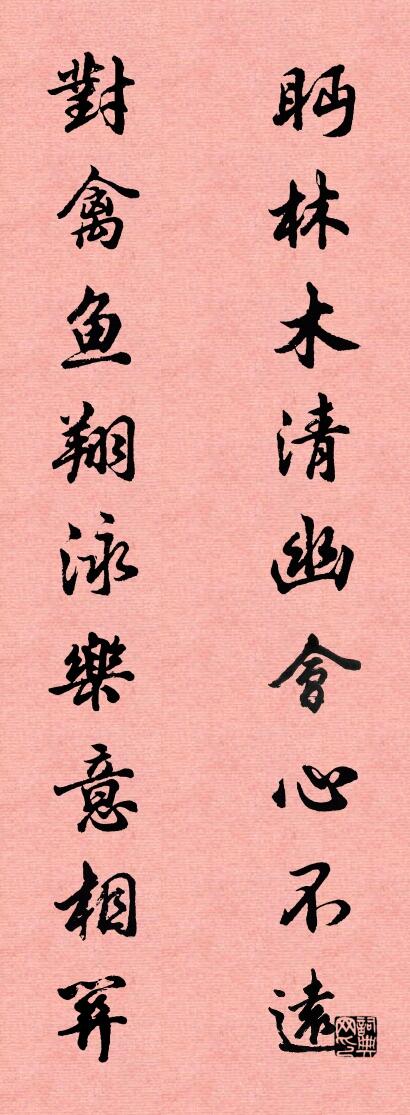 眄林木清幽會心不遠
對禽魚翔泳樂意相關
詞典